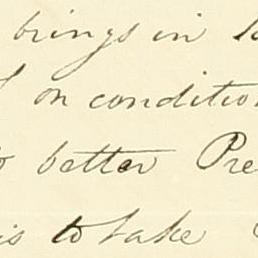 brings in
on condition
better Pre
is to take